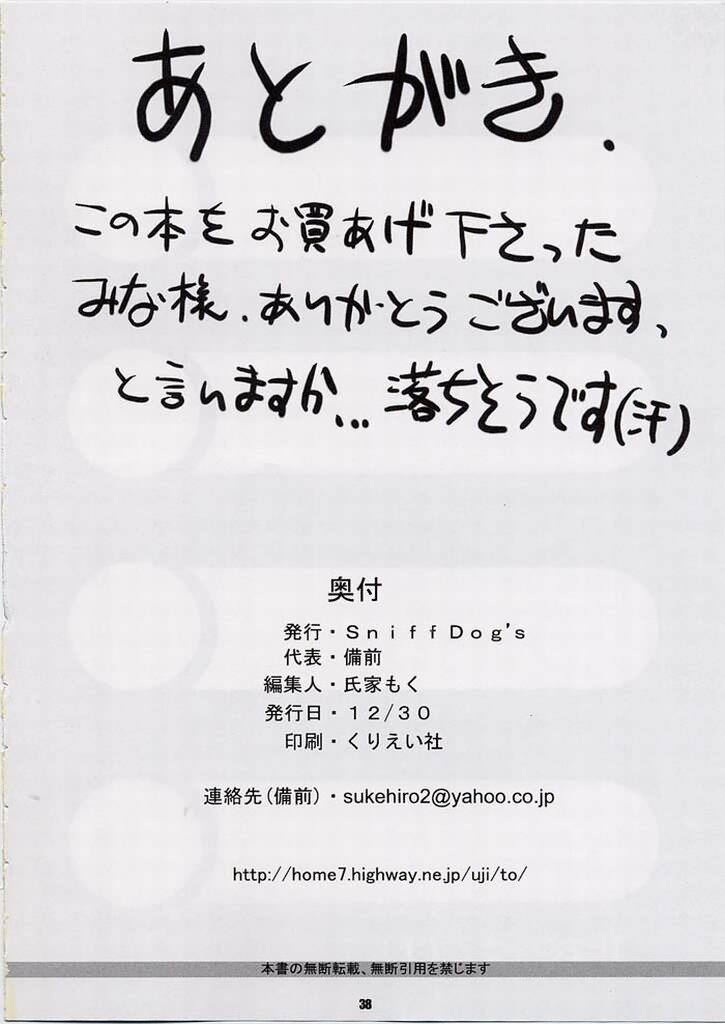 あとがき.
この本をお買あげ下さった
みな様.ありがとうございます、
と言いますか...落ちそうです(汗)
奥付
発行・ＳｎｉｆｆＤｏｇ’ｓ
代表・備前
編集人・氏家もく
発行日・１２/３０
印刷・くりえい社
連絡先(備前)・sukehiro2@yahoo.co.jp
http://home7.highway.ne.jp/uji/to/
本書の無断転載、無断引用を禁じます
38